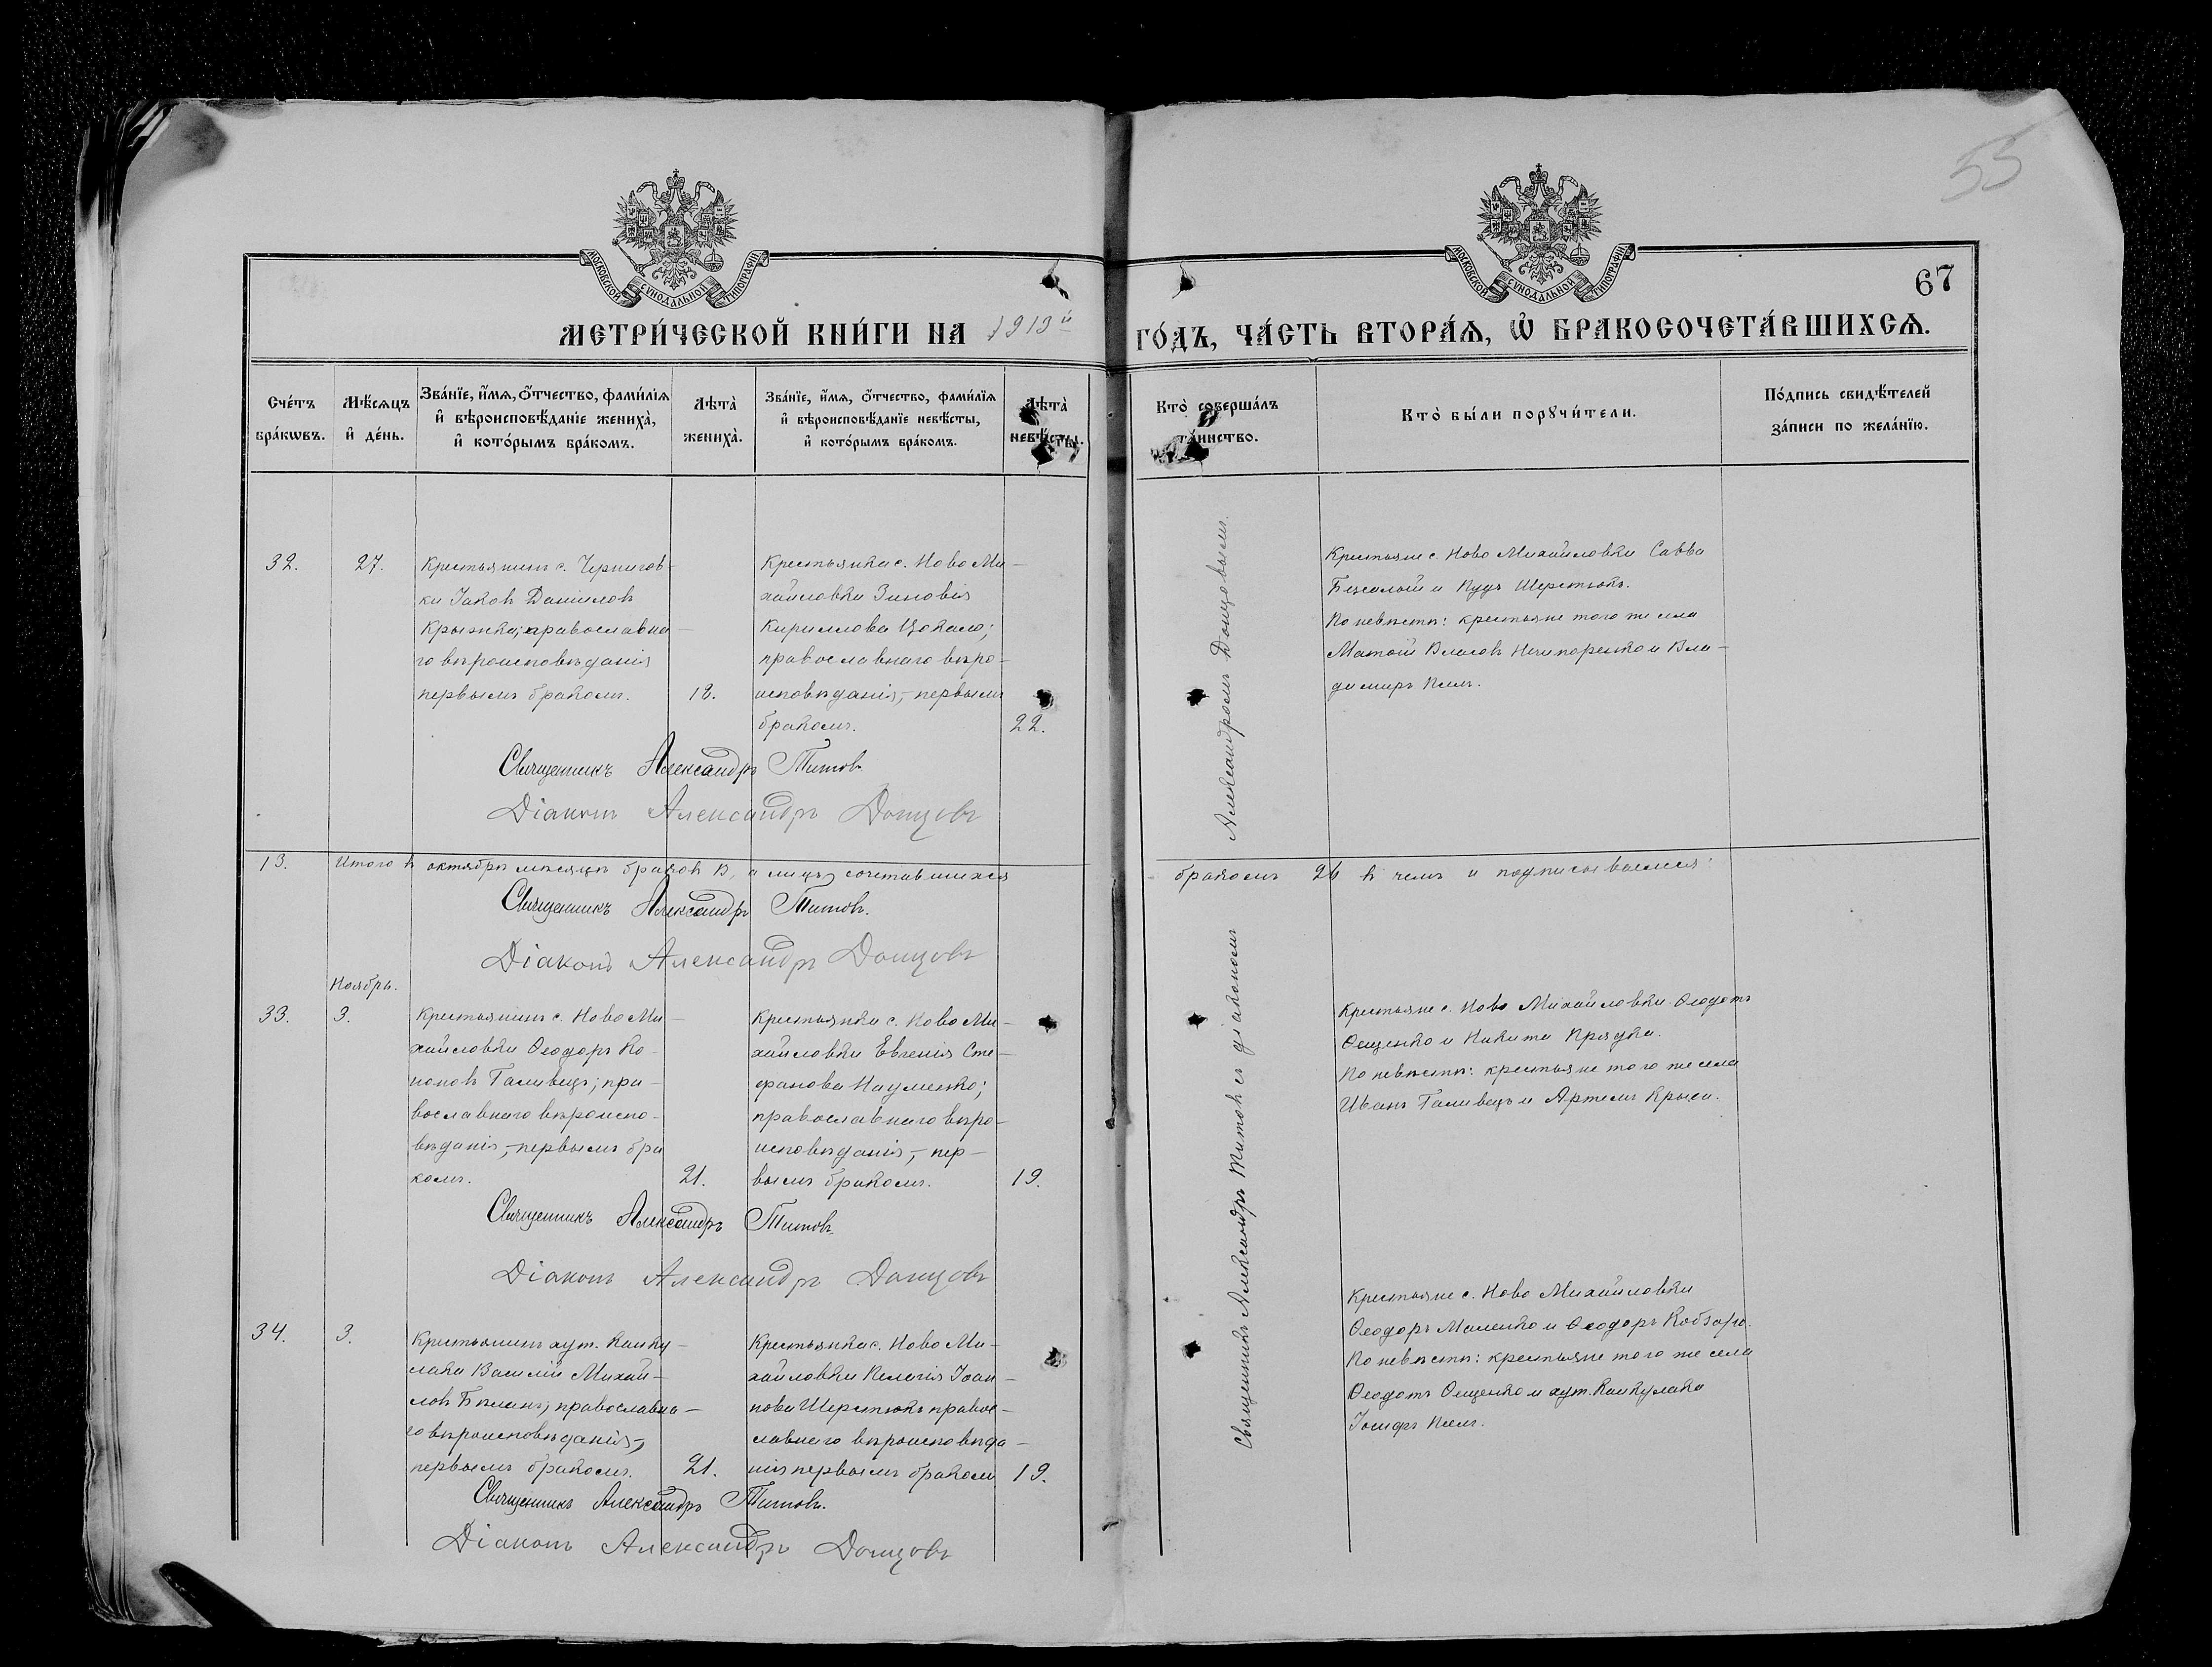 55
67
МОСКОВСКОЙ СУНОДАЛЬНОЙ ТИПОГРАФІИ
МОСКОВСКОЙ СУНОДАЛЬНОЙ ТИПОГРАФІИ
МЕТРИ́ЧЕСКОЙ КНИ́ГИ НА 1913й ГО́ДЪ, ЧА́СТЬ ВТОРА́Ѧ, Ѽ БРАКОСОЧЕТА́ВШИХСѦ.
Сче́тъ бра́кѡвъ.
Мѣ́сѧцъ и҆ де́нь.
Зва́нїе, и҆́мѧ, ѻ҆́тчество, фами́лїѧ и҆ вѣроисповѣ́данїе жениха̀, и҆ кото́рымъ бра́комъ.
Лѣта̀ жениха̀.
Зва́нїе, и҆́мѧ, ѻ҆́тчество, фами́лїѧ и҆ вѣроисповѣ́данїе невѣ́сты, и҆ кото́рымъ бра́комъ.
Лѣта̀ невѣ́сты.
Кто̀ соверша́лъ та́инство.
Кто̀ бы́ли порꙋчи́тели.
По́дпись свидѣ́телей за́писи по жела́нїю.
32.
27.
Крестьянинъ с. Чернигов-
ки Іаковъ Даніиловъ
Крыжка; православна-
го вѣроисповѣданія
первымъ бракомъ.
18.
Крестьянка с. Ново Ми-
хайловки Зиновія
Кириллова Цокало;
православнаго вѣро-
исповѣданія, первымъ
бракомъ.
22.
Крестьяне с. Ново Михайловки Савва
и Шерстюкъ.
По невѣстѣ: крестьяне того же села
Власовъ Нечипоренко и Вла-
димиръ
Священникъ Александръ Титовъ
Діаконъ Александръ Донцовъ
13.
Итого въ октябрѣ мѣсяцѣ браковъ 13, а лицъ сочетавшихся бракомъ 26 въ чемъ и подписываемся:
Священникъ Александръ Титовъ.
Діаконъ Александръ Донцовъ
Ноябрь.
33.
3.
Крестьянинъ с. Ново Ми-
хайловки Ѳеодоръ Ко-
ноновъ Галивецъ; пра-
вославнаго вѣроиспо-
вѣданія, первымъ бра
комъ.
21.
Крестьянка с. Ново Ми-
хайловки Евгенія Сте-
фанова Науменко;
православнаго вѣро-
исповѣданія, пер-
вымъ бракомъ.
19.
Крестьяне с. Ново Михайловки Ѳеодотъ
Ѳещенко и Никита Прядка.
По невѣстѣ: крестьяне того же села
Иванъ Галивецъ и Артемъ
Священникъ Александръ Титовъ
Діаконъ Александръ Донцовъ
34.
3.
Крестьянинъ хут. Канку-
лака Василій Михай-
ловъ Бѣланъ, православна-
го вѣроисповѣданія,
первымъ бракомъ.
21.
Крестьянка с. Ново Ми-
хайловки Пелагія Іоан-
нова Шерстюкъ правос-
лавнаго вѣроисповѣда-
нія первымъ бракомъ
19.
Крестьяне с. Ново Михайловки
Ѳеодоръ Маленко и Ѳеодоръ Кобзарь.
По невѣстѣ: крестьяне того же села
Ѳеодотъ Ѳещенко и хут. Канкулака
Іосифъ
Священникъ Александръ Титовъ.
Діаконъ Александръ Донцовъ
Священникъ Александръ Титовъ съ діакономъ
Александромъ Донцовымъ.